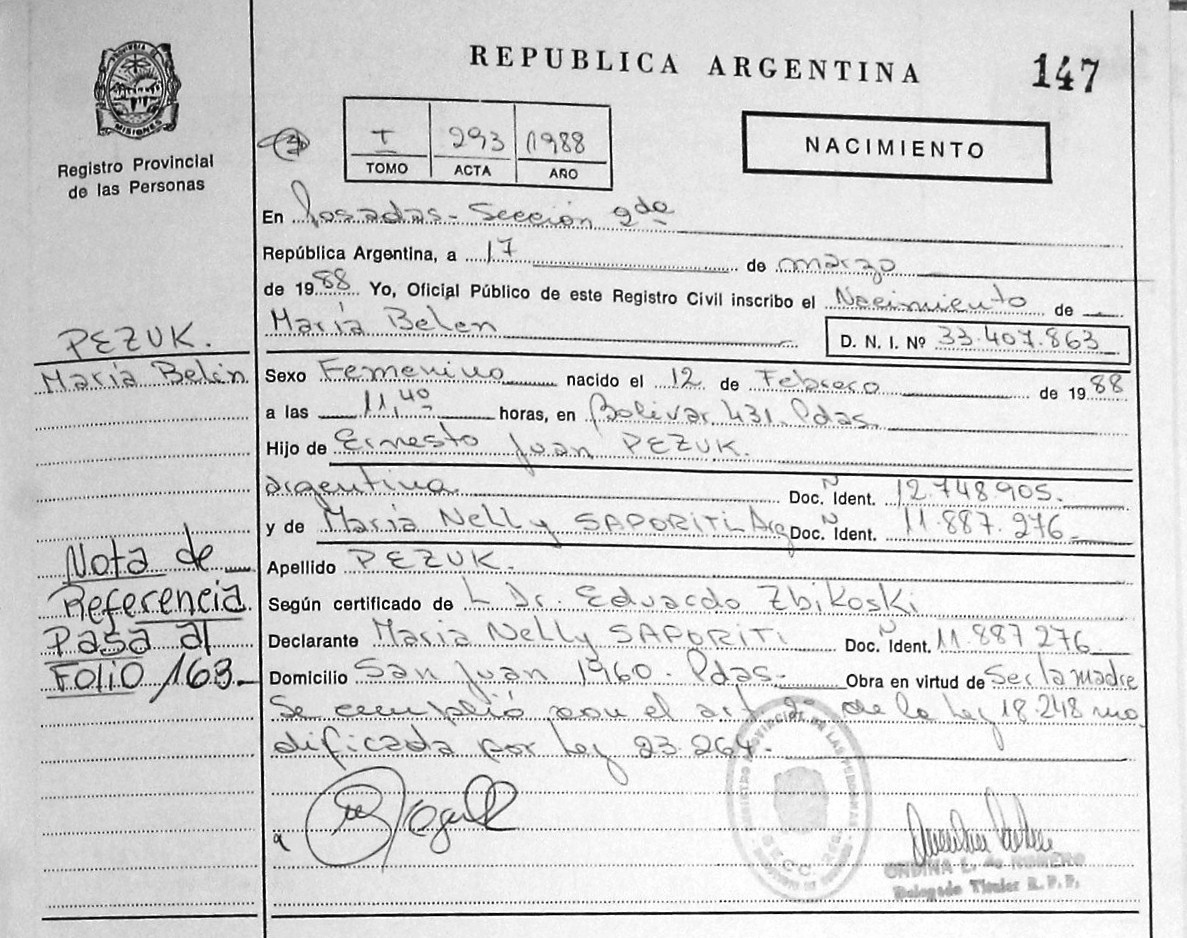 REPUBLICA ARGENTINA
147
PROVINCIA DE
MISIONES
Registro Provincial
de las Personas
I 293 1988
TOMO ACTA AÑO
NACIMIENTO
En Posadas - Sección 2da
República Argentina, a 17 de marzo
de 1988 Yo, Oficial Público de este Registro Civil inscribo el Nacimiento de
María Belen
D. N. I. Nº 33.407.863
PEZUK.
María Belén
Sexo Femenino nacido el 12 de Febrero de 1988
a las 11,40 horas, en Bolivar 431. Pdas.
Hijo de Ernesto Juan PEZUK.
argentina Doc. Ident. N 12.748.905.
y de María Nelly SAPORITI. Arg Doc. Ident. N 11.887.276
Apellido PEZUK.
Según certificado de L Dr. Eduardo Zbikoski
Declarante Maria Nelly SAPORITI Doc. Ident. N 11.887 276
Domicilio San Juan 1960. Pdas. Obra en virtud de Ser la madre
Se cumplió con el art de la Ley 18.248 mo
dificada por Ley 23.264.
Nota de
Referencia
Pasa al
FOLIO 163.
REGISTRO PROVINCIAL DE LAS PERSONAS
SECC. 2da.
ONDINA E. de ROMERO
Delegado Titular R. P. P.